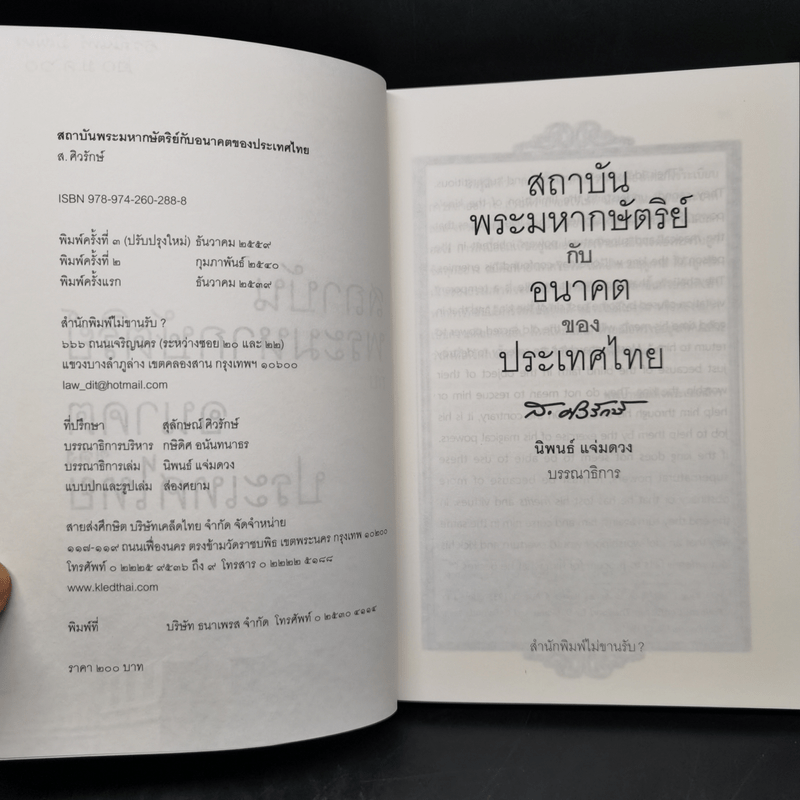 สถาบันพระมหากษัตริย์กับอนาคตของประเทศไทย
ส. ศิวรักษ์
ISBN 978-974-260-288-8
พิมพ์ครั้งที่ ๓ (ปรับปรุงใหม่) ธันวาคม ๒๕๕๙
พิมพ์ครั้งที่ ๒ กุมภาพันธ์ ๒๕๔๐
พิมพ์ครั้งแรก ธันวาคม ๒๕๓๙
สำนักพิมพ์ไม่ขานรับ ?
๖๖๖ ถนนเจริญนคร (ระหว่างซอย ๒๐ และ ๒๒)
แขวงบางลำภูล่าง เขตคลองสาน กรุงเทพฯ ๑๐๖๐๐
law_dit@hotmail.com
ที่ปรึกษา สุลักษณ์ ศิวรักษ์
บรรณาธิการบริหาร กษิดิศ อนันทนาธร
บรรณาธิการเล่ม นิพนธ์ แจ่มดวง
แบบปกและรูปเล่ม สองศยาม
สายส่งศึกษิต บริษัทเคล็ดไทย จำกัด จัดจำหน่าย
๑๑๗-๑๑๙ ถนนเฟื่องนคร ตรงข้ามวัดราชบพิธ เขตพระนคร กรุงเทพ ๑๐๒๐๐
โทรศัพท์ ๐ ๒๒๒๕ ๙๕๓๖ ถึง ๙ โทรสาร ๐ ๒๒๒๒ ๕๑๘๘
www.kledthai.com
พิมพ์ที่ บริษัท ธนาเพรส จำกัด โทรศัพท์ ๐ ๒๕๓๐ ๔๑๑๔
ราคา ๒๐๐ บาท
สถาบัน
พระมหากษัตริย์
กับ
อนาคต
ของ
ประเทศไทย
ส. ศิวรักษ์
นิพนธ์ แจ่มดวง
บรรณาธิการ
สำนักพิมพ์ไม่ขานรับ ?